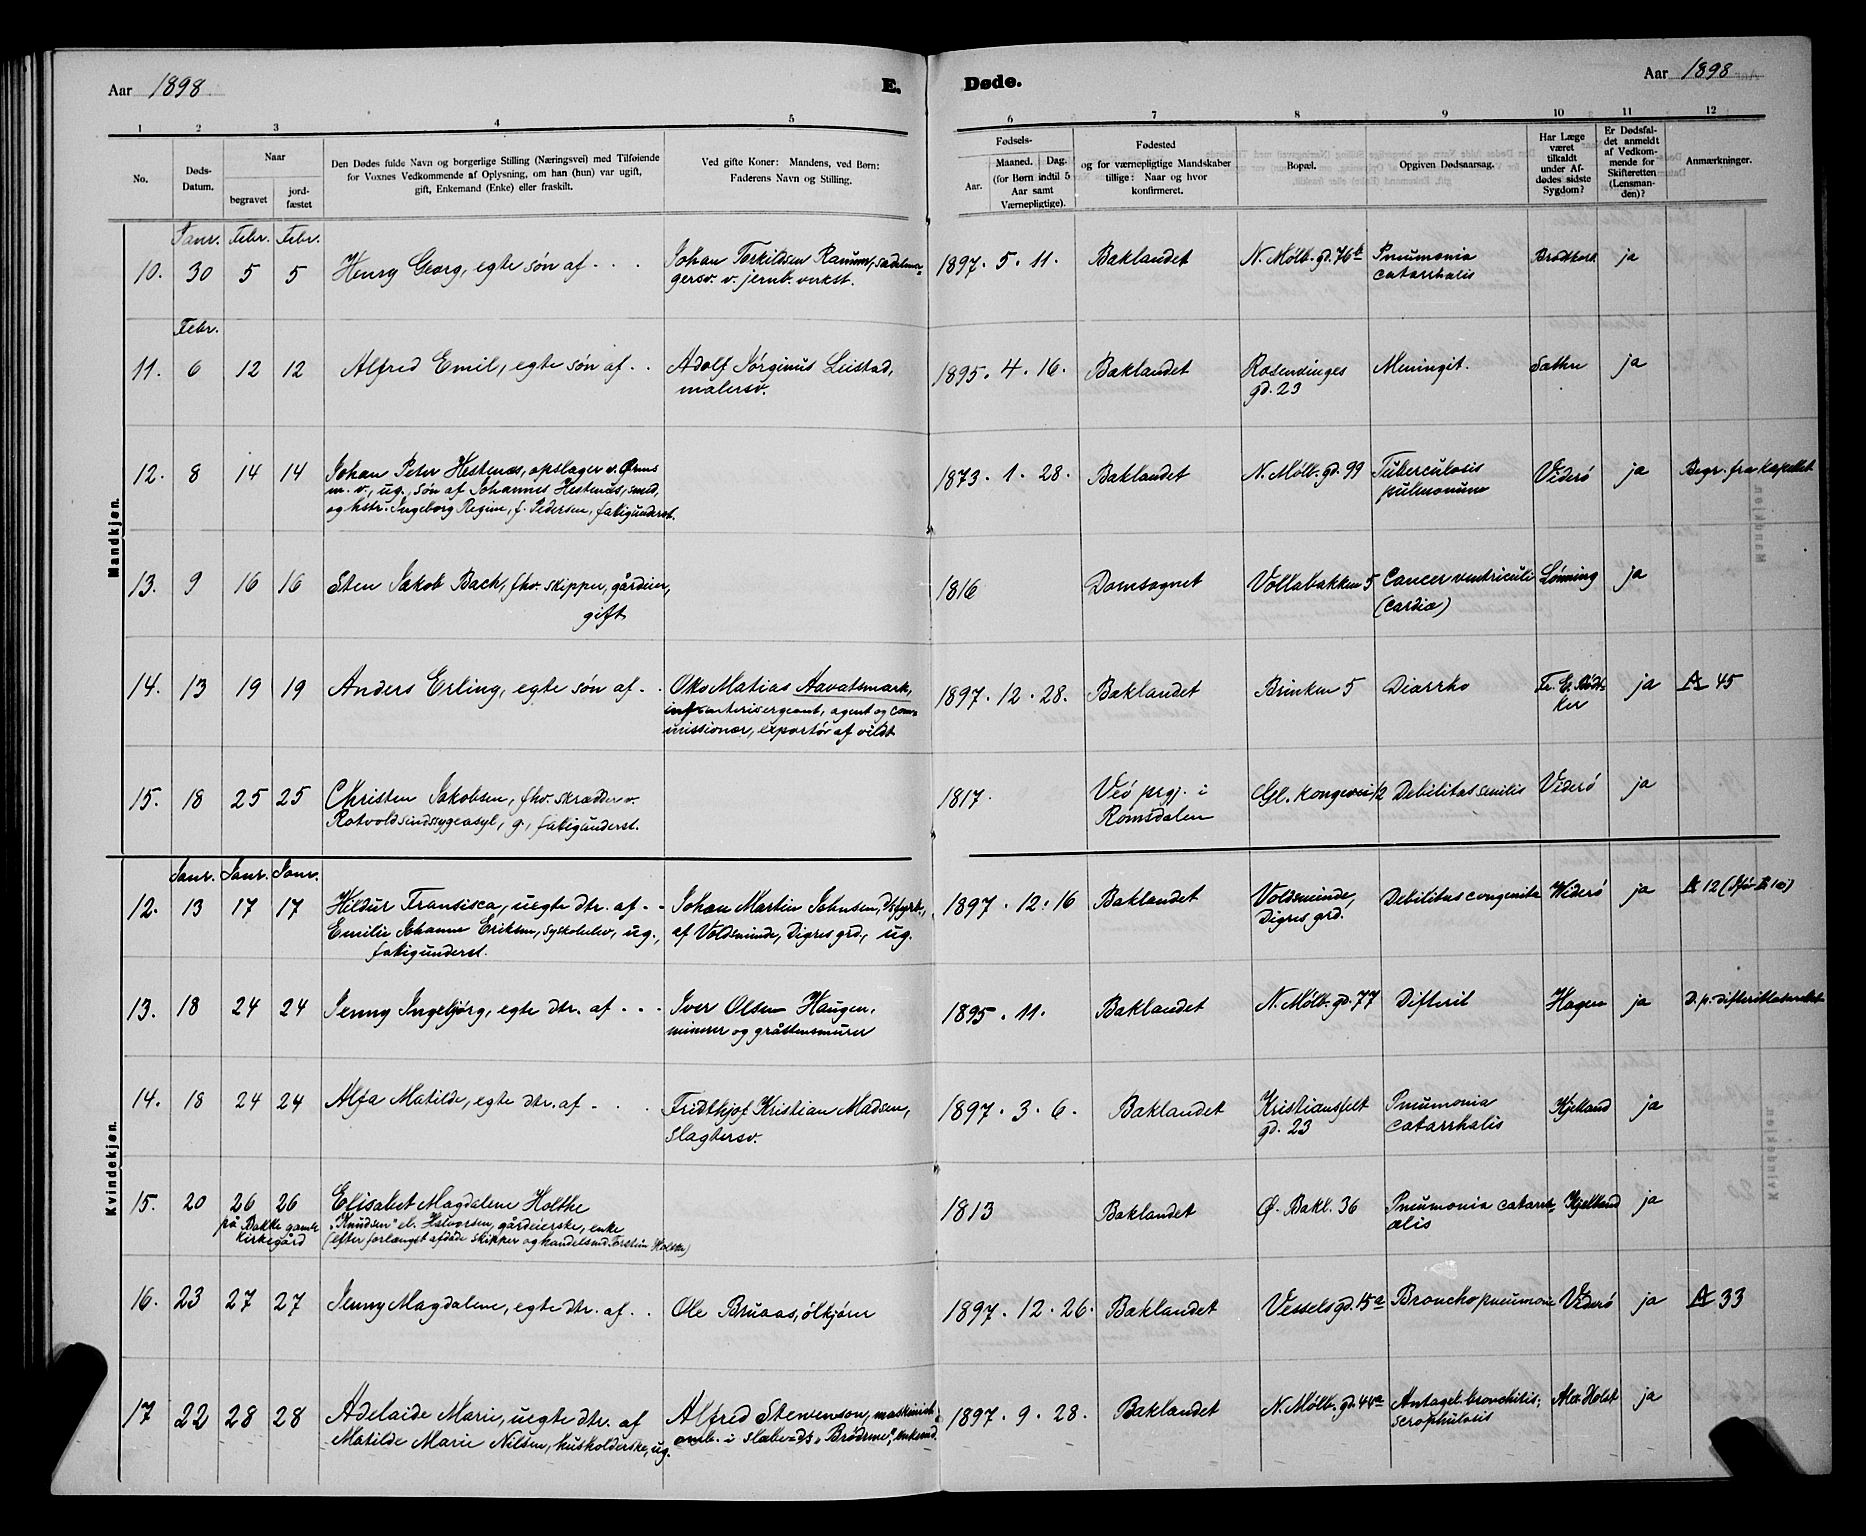 Aar 1898
E.
Døde.
Aar 1898
1 2 3 4 5 6 7 8 9 10 11 12
No.
Døds-
Datum.
Naar
begravet
jord-
fæstet
Den Dødes fulde Navn og borgerlige Stilling (Næringsvei) med Tilføiende
for Voxnes Vedkommende af Oplysning, om han (hun) var ugift,
gift, Enkemand (Enke) eller fraskilt.
Ved gifte Koner: Mandens, ved Børn:
Faderens Navn og Stilling.
Fødsels-
Aar.
Maaned. Dag.
(for Børn indtil 5
Aar samt
Værnepligtige).
Fødested
og for værnepligtige Mandskaber
tillige: Naar og hvor
konfirmeret.
Bopæl.
Opgiven Dødsaarsag.
Har Læge
været
tilkaldt
under Af-
dødes sidste
Sygdom?
Er Dødsfal-
det anmeldt
af Vedkom-
mende for
Skifteretten
(Lensman-
den)?
Anmærkninger.
Mandkjøn.
Janr. Febr. Febr.
10. 30 5 5 Henry Georg, egte søn af . . . Johan Torkildsen Ranum, sadelma- 1897. 5. 11. Baklandet N. Mølb. gd. 76b Pneumonia Brodtkorb ja
gersv. v. jernb. verkst. catarrhalis
Febr.
11. 6 12 12 Alfred Emil, egte søn af . . Adolf Jørginus Leistad, 1895. 4. 16. Baklandet Rosenvinges Meningit. Sæther ja
malersv. gd. 23
12. 8 14 14 Johan Peter Hestenæs, opslager v. Ørens 1873. 1. 28. Baklandet N. Mølb. gd. 99 Tuberculosis Viderö ja Begr. fra Kapellet
m. v., ug., søn af Johannes Hestenæs, smed, pulmonum
og hstr. Ingeborg Regine, f. Pedersen, fatigunderst.
13. 9 16 16 Sten Jakob Bach, fhv. skipper, gårdeier, 1816 Domsognet Vollabakken 5 Cancer ventriculi Lønning ja
gift (cardia)
14. 13 19 19 Anders Erling, egte søn af . . Matias Aavatsmark, 1897. 12. 28. Baklandet Brinken 5 Diarrho ja A 45
infanterisergeant, agent og com- ker
missionær, exportør af vildt
15. 18 25 25 Christen Jakobsen, fhv. skrædder v. 1817. Veö prgj. i Gl. kongevei 12 Debilitas senilis Viderö ja
Rotvold sindssygeasyl, g., fatigunderst. Romsdalen
Kvindekjøn.
Janr. Janr. Janr.
12. 13 17 17 Hildur Fransisca, uegte dtr. af . . Johan Martin Johnsen, 1897. 12. 16 Baklandet Voldsminde, Debilitas congenita Widerö ja A 12
Emilie Johanne Eriksen, ug., af Voldsminde, Digres grd., ug. Digres grd.
fatigunderst.
13. 18 24 24 Jenny Ingebjørg, egte dtr. af . . . Iver Olsen Haugen, 1895. 11. Baklandet N. Mølb. gd. 77 Difterit Hagen ja D. p. difterilasarettet
minerer og gråstensmurer
14. 18 24 24 Alfa Matilde, egte dtr. af . . . Fridthjof Kristian Madsen, 1897. 3. 6. Baklandet Kristiansfelt Pneumonia Kjelland ja
slagtersv. gd. 23 catarrhalis
15. 20 26 26 Elisabet Magdalene Holthe 1813 Baklandet Ø. Bakl. 36 Pneumonia catarrh- Kjelland ja
på Bakke gamle "Knudsen" el. Halvorsen, gårdeierske, enke alis
kirkegård (efter forlængst afdøde skipper og handelsmd. Torstein Holthe)
16. 23 27 27 Jenny Magdalene, egte dtr. af . . Ole Bruaas, ølkjører 1897. 12. 26. Baklandet Vessels gd. 15a Bronchopneumoni Viderö ja A 33
17 22 28 28 Adelaide Marie, uegte dtr. af Alfred Stevenson, maskinist 1897. 9. 28. Baklandet N. Mølb. gd. 44a Antagel. bronchitis; Alex. Holst ja
Matilde Marie Nilsen, husholderske, ug. omb. i "Brødrene", enkemd. scrophulosis